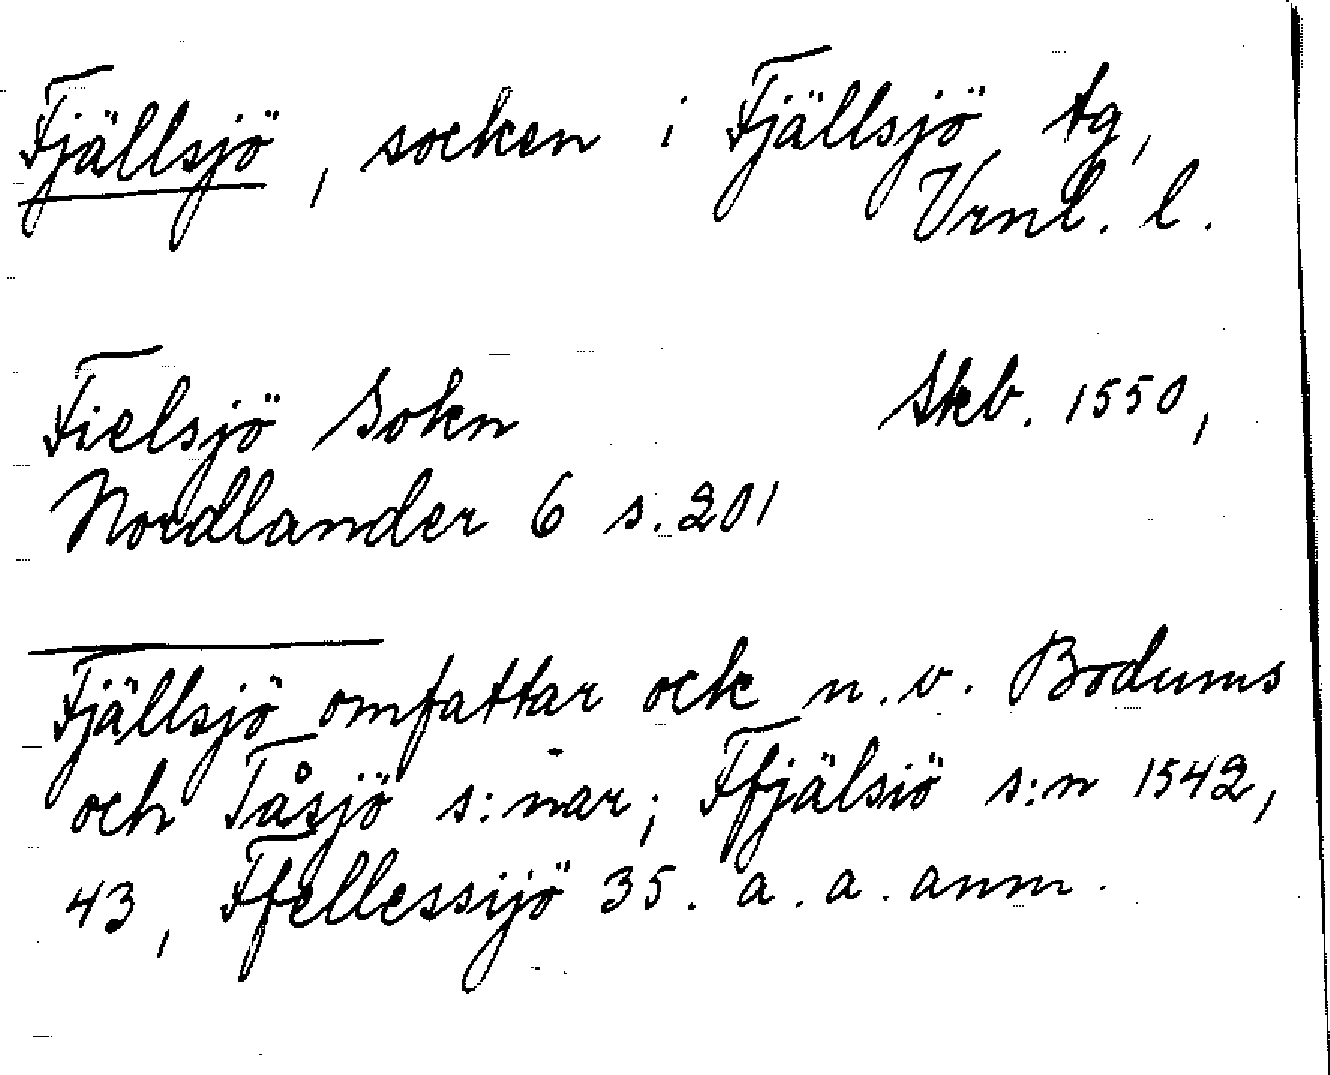 Fjällsjö, socken i Fjällsjö tg,
Vrnl. l.
Fielsjö Sokn Skb. 1550,
Nordlander 6 s. 201
Fjällsjö omfattar ock n.v. Bodums
och Tåsjö s:nar; Ffjälsiö s:n 1542,
43, Ffellessijö 35. a.a. anm.